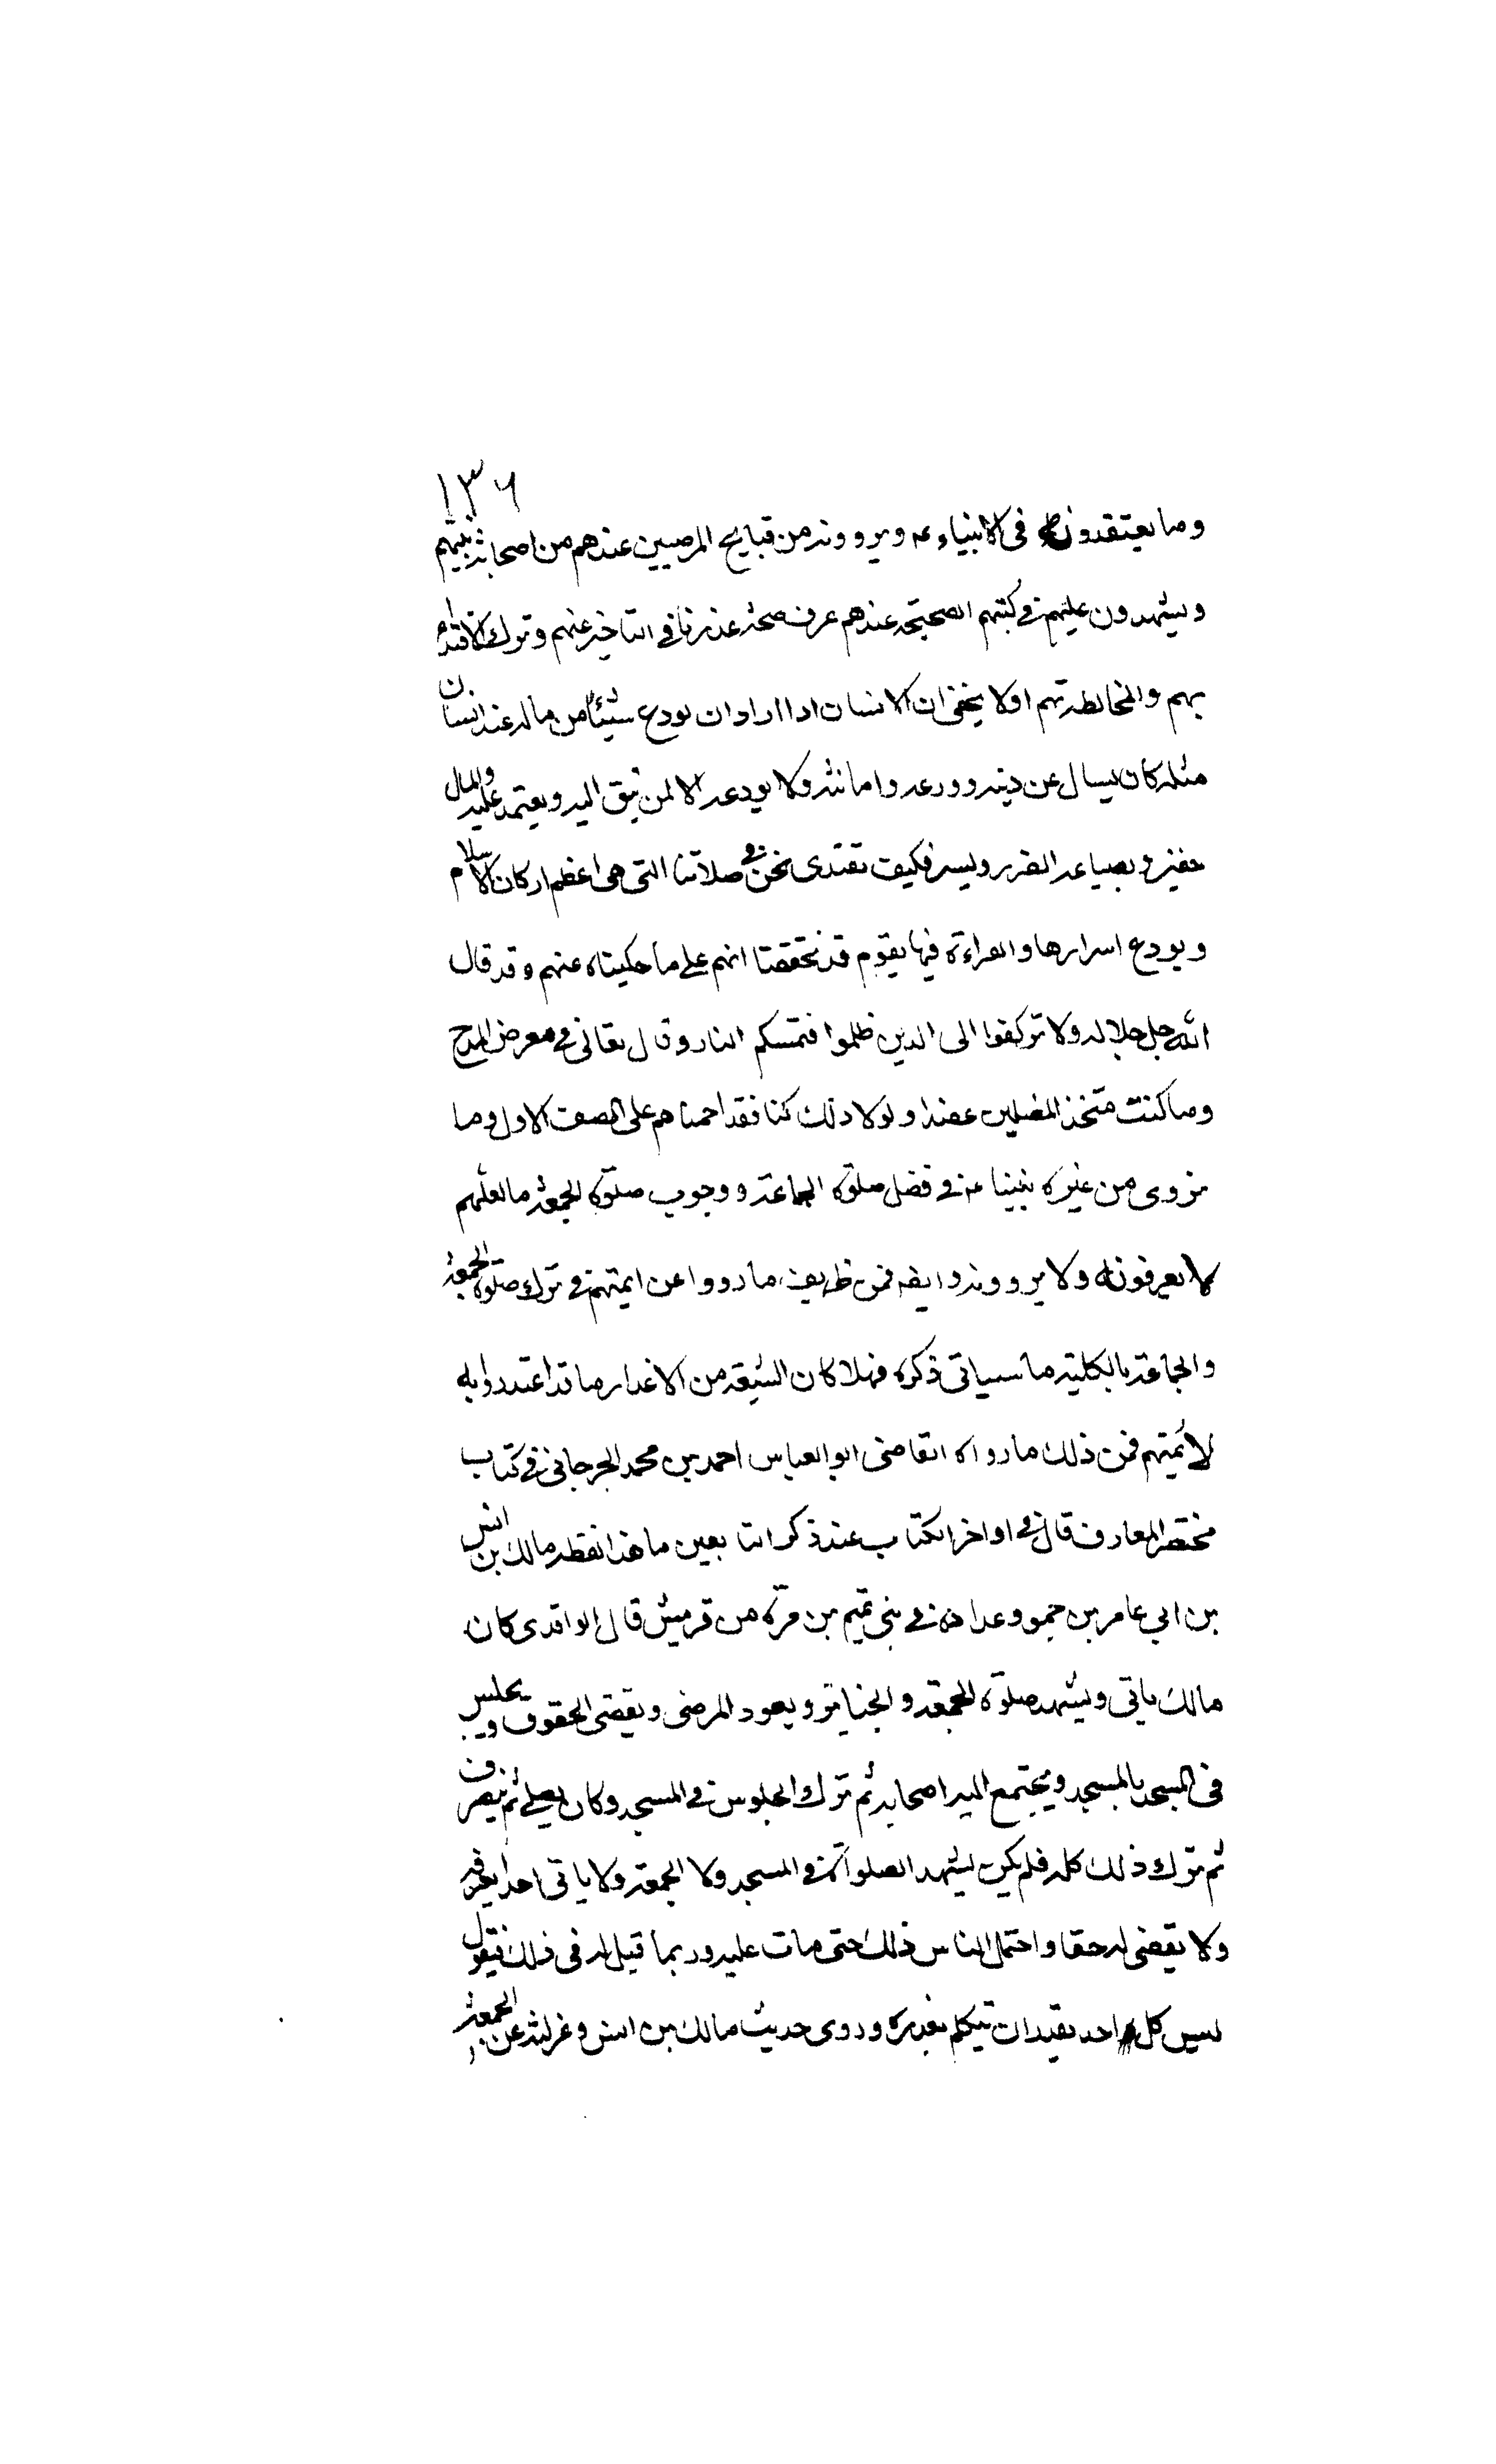 ١٣٦
وما يعتقدونه فى الانبياء عه ويروونه من قبايح المرضيين عندهم من اصحابه نبيهم
ويشهدون عليهم فى كتبهم الصحيحة عندهم عرف صحة عذرنا فى التاخير عنهم وترك الاقتداء
بهم والمخالطة بهم اولا يخفى ان الانسان اذا اراد ان يودع شيئا من ماله عند انسان
مثله كان يسال عن دينه وورعه وامانته ولا يودعه الا لمن يثق اليه ويعتمد عليه والمال
حقير وبضياعه الضرر يسير فكيف نقتدى نحن فى صلاتنا التى هى اعظم اركان الاسلام
ويودع اسرارها والقراءة فيها بقوم قد تحققنا انهم على ما حكيناه عنهم وقد قال
الله جل جلاله ولا تركنوا الى الذين ظلموا فتمسكم النار وقال تعالى فى معرض المدح
وما كنت متخذ المضلين عضدا ولولا ذلك كنا فقد احمناهم على الصف الاول وما
نروى من غيره نبينا عه فى فضل صلوة الجماعة ووجوب صلوة الجمعة ما لعلهم
لا يعرفونه ولا يروونه وايضه فمن ظريف ما رووا عن ايمتهم فى ترك صلوة الجمعة
والجماعة بالكلية ما سياتى ذكره فهلا كان للشيعة من الاعذار ما قد اعتذروا به
لائمتهم فمن ذلك ما رواه القاضى ابو العباس احمد بن محمد الجرجانى فى كتاب
مختصر المعارف قال فى اواخر الكتاب عند ذكر التابعين ما هذا لفظه مالك بن انس
بن ابى عامر بن حمير وعداده فى بنى تميم بن مرة من قريش قال الواقدى كان
مالك ياتى ويشهد صلوة الجمعة والجنايز ويعود المرضى ويقضى الحقوق ويجلس
فى المسجد بالمسجد ويجتمع اليه اصحابه ثم ترك الجلوس فى المسجد وكان يصلى ثم ينصرف
ثم ترك ذلك كله فلم يكن يشهد الصلوات فى المسجد ولا الجمعة ولا ياتى احدا يعزيه
ولا يقضى له حقا واحتمل الناس ذلك حتى مات عليه وربما قيل له فى ذلك فيقول
ليس كل احد يقدر ان يتكلم بعذره وروى حديث مالك بن انس وعزلته عن الجمعة